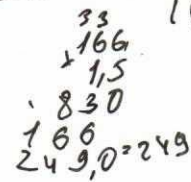 33
166
× 1,5
830
166
249,0=249